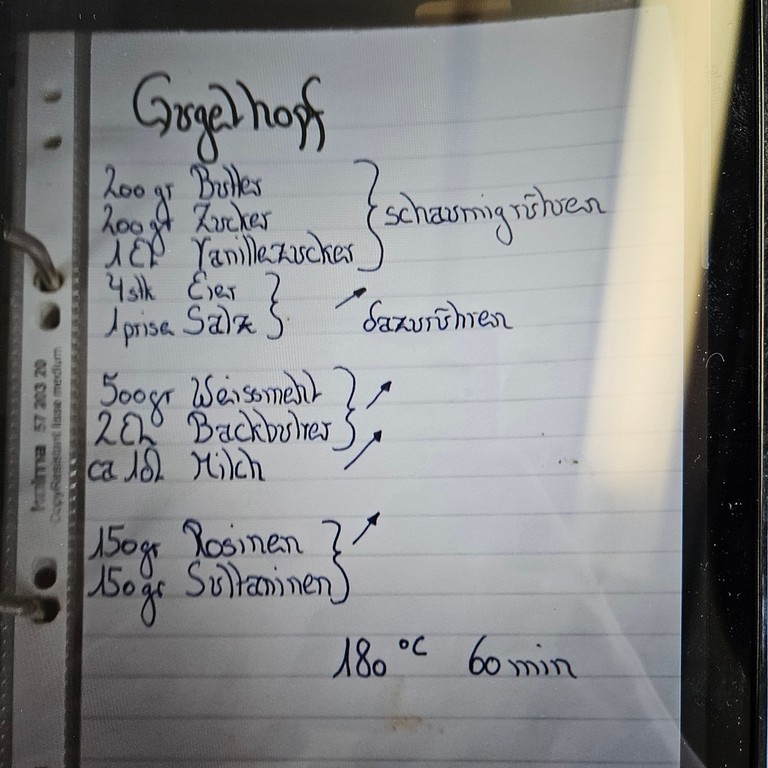 Gugelhopf
200gr Butter
200gr Zucker } schaumigrühren
1 EL Vanillezucker
4stk Eier
1 prise Salz } dazurühren
500gr Weissmehl
2 EL Backbulver
ca 1dl Milch
150gr Rosinen
150gr Sultaninen
180 °C 60 min
57 203 20
CopyResistant lisse medium